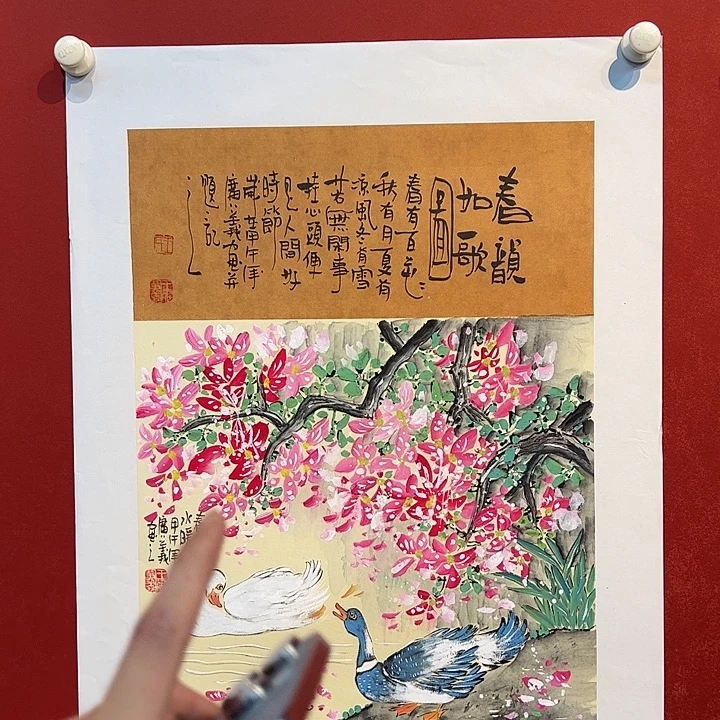 春韻
如歌
圖
春有百花
秋有月夏有
涼風冬有雪
若無閑事
挂心頭便
是人間好
時節
歲甲午年
廣義畫并
題記
春
水暖
甲午年
廣義
畫之